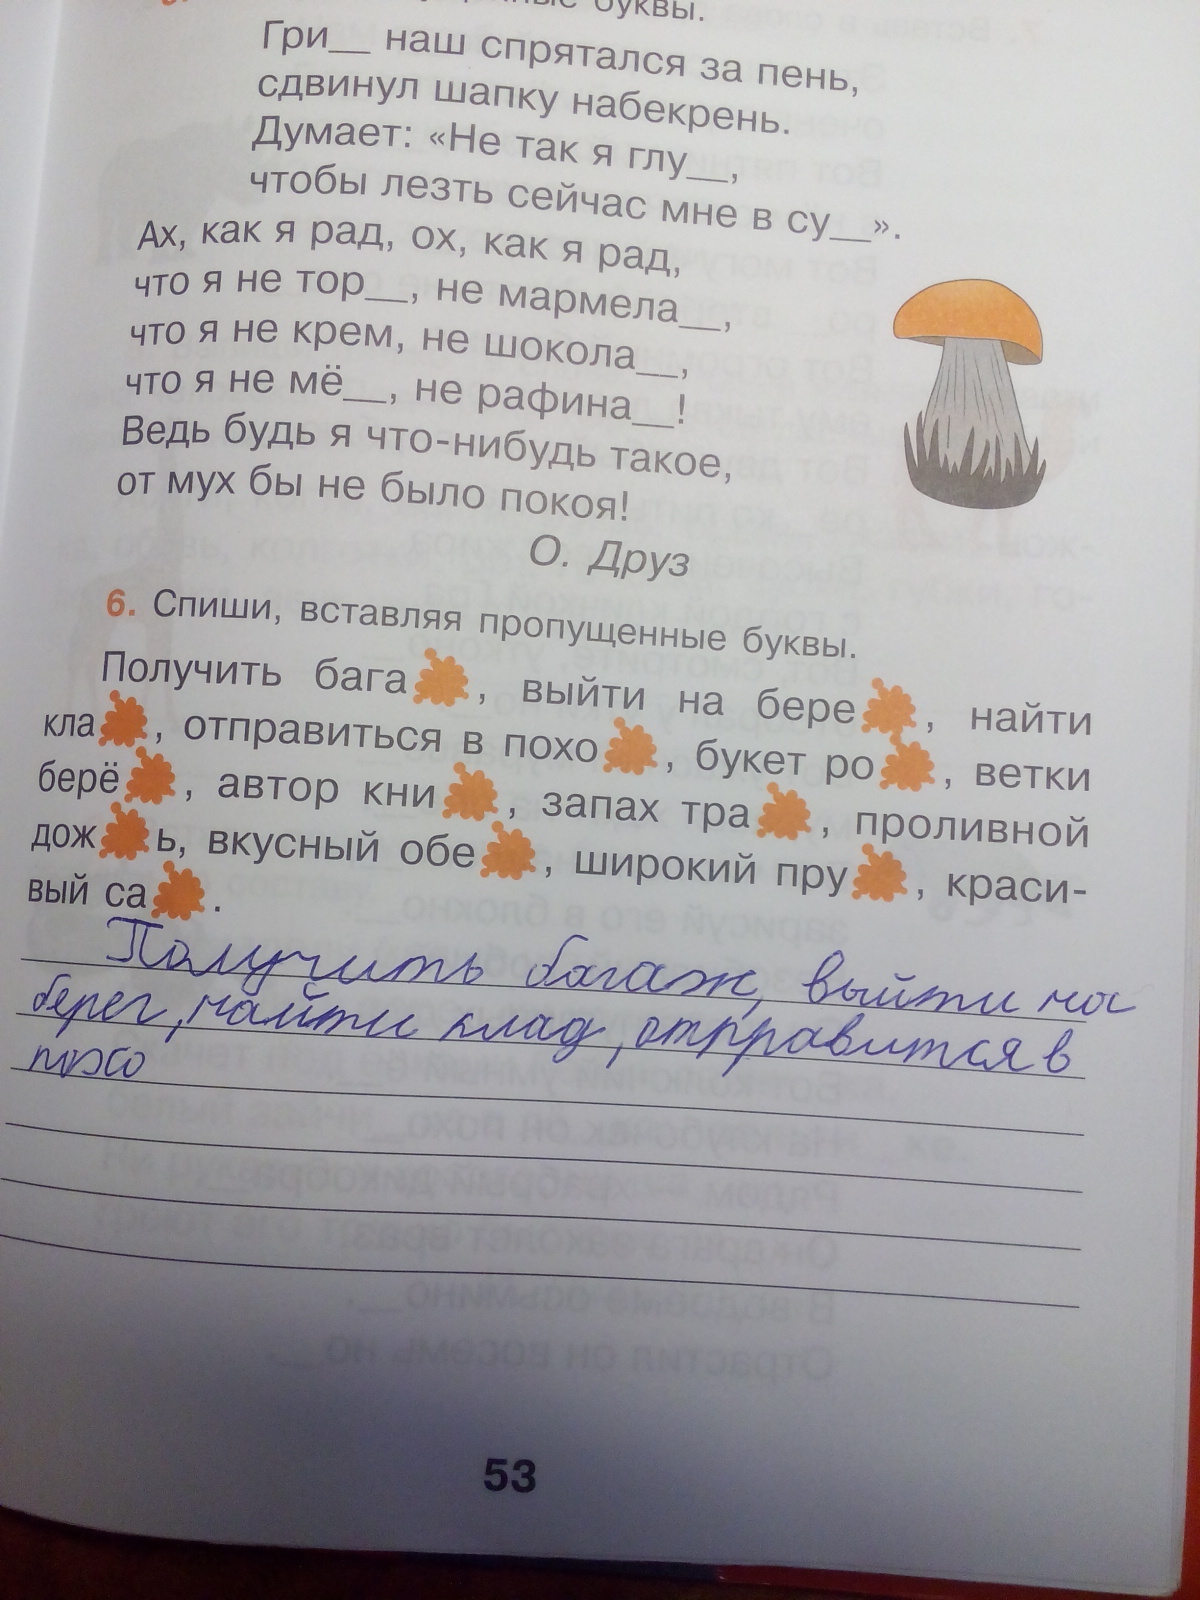 буквы.
Гри__ наш спрятался за пень,
сдвинул шапку набекрень.
Думает: «Не так я глу__,
чтобы лезть сейчас мне в су__».
Ах, как я рад, ох, как я рад,
что я не тор__, не мармела__,
что я не крем, не шокола__,
что я не мё__, не рафина__!
Ведь будь я что-нибудь такое,
от мух бы не было покоя!
О. Друз
6. Спиши, вставляя пропущенные буквы.
Получить бага , выйти на бере , найти
кла , отправиться в похо , букет ро , ветки
берё , автор кни , запах тра , проливной
дож ь, вкусный обе , широкий пру , краси-
вый са .
Получить багаж, выйти на
берег, найти клад, отправится в
похо
53